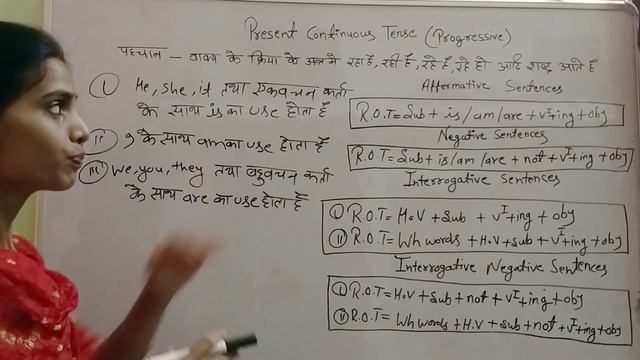 Present Continuous Tense (Progressive)
पहचान — वाक्य के क्रिया के अन्त मे रहा है, रही है, रहे है, रहे हो आदि शब्द आते है
(i) He, she, it तथा एकवचन कर्ता
के साथ is का use होता है
(ii) I के साथ am का use होता है
(iii) We, you, they तथा बहुवचन कर्ता
के साथ are का use होता है
Affermative Sentences
R.O.T = Sub + is/am/are + VI+ing + obj
Negative Sentences
R.O.T = Sub + is/am/are + not + VI+ing + obj
Interrogative Sentences
(i) R.O.T = H.V + Sub + VI+ing + obj
(ii) R.O.T = Wh words + H.V + sub + VI+ing + obj
Interrogative Negative Sentences
(i) R.O.T = H.V + Sub + not + VI+ing + obj
(ii) R.O.T = Wh words + H.V + sub + not + VI+ing + obj